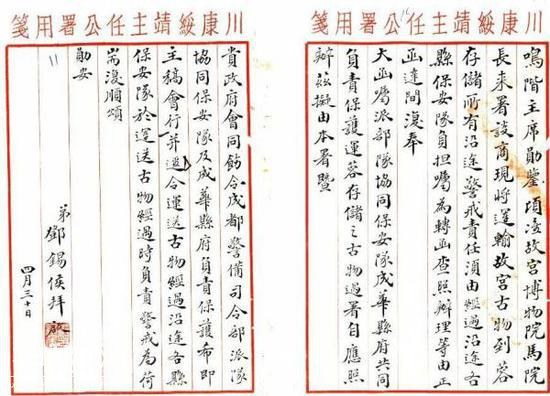 川康綏靖主任公署用箋
鳴階主席勛鑒頃故宮博物院馬院
長來署談商現將運輸故宮古物到蓉
存儲所有沿途警戒責任須由經過沿途各
縣保安隊負担囑為轉函查照辦理等由正
函達間復奉
大函囑派部隊協同保安隊成華縣府共同
負責保護運蓉存儲之古物過署自應照
辦茲擬由本署暨
川康綏靖主任公署用箋
貴政府會同飭令成都警備司令部派隊
協同保安隊及成華縣府負責保護希即
主稿會行并令運送古物經過沿途各縣
保安隊於運送古物經過時負責警戒為荷
耑復順頌
勛安
弟鄧錫侯拜啟
四月三十日